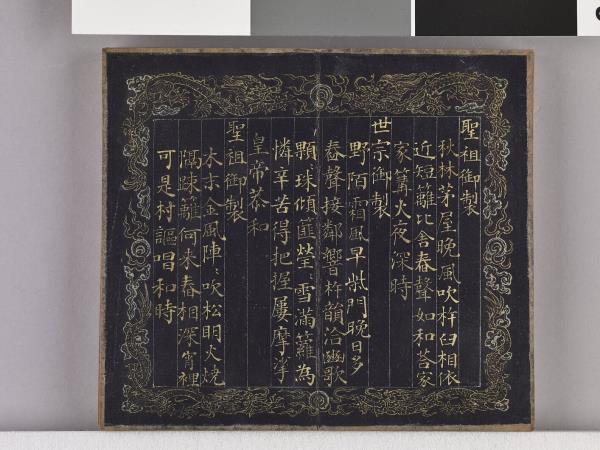 聖祖御製
秋林茅屋晚風吹杵臼相依
近短籬比舍舂聲如和荅家
家篝火夜深時
世宗御製
野陌霜風早柴門晚日多
舂聲接鄰響杵韻洽豳歌
顆〻珠傾篚瑩〻雪滿籮為
憐辛苦得把握屢摩挲
皇帝恭和
聖祖御製
木末金風陣〻吹松明火燒
隔踈籬何來舂相深宵裡
可是村謳唱和時